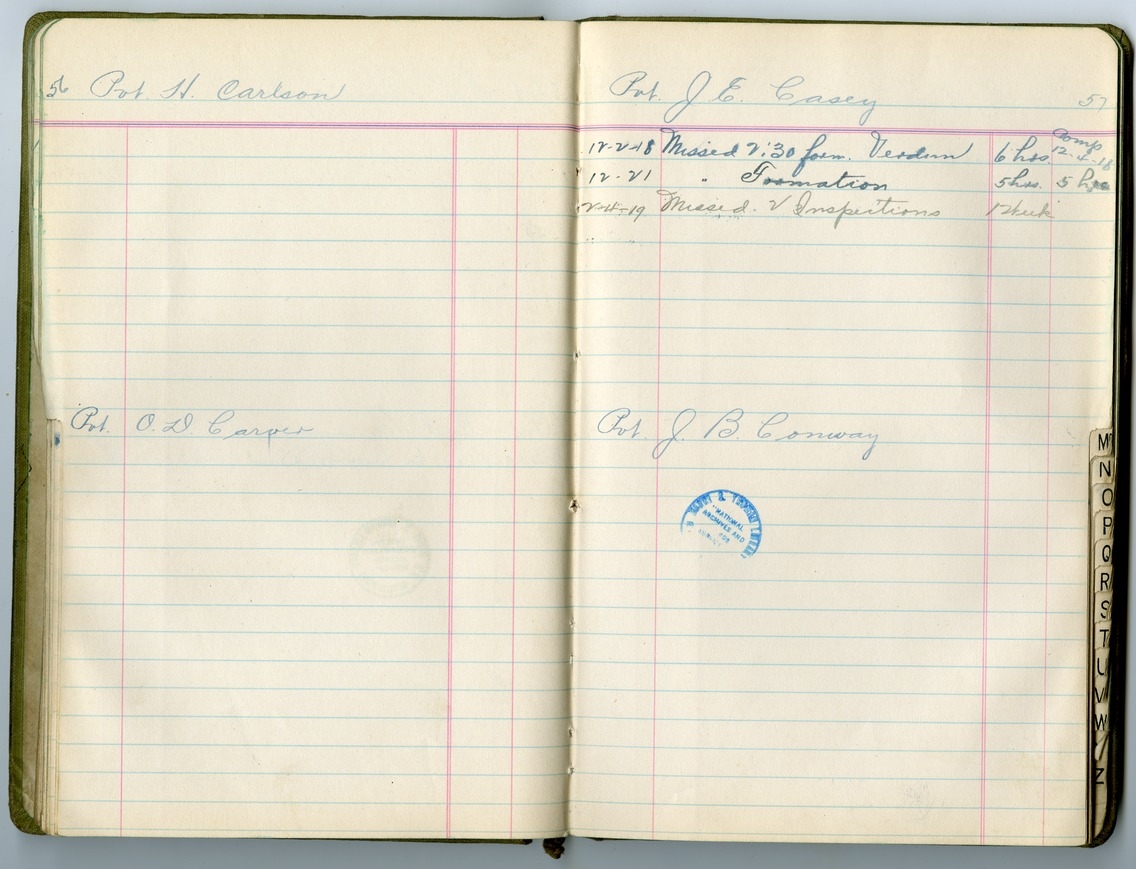 56 Pvt. H. Carlson
Pvt. O. D. Carver
Pvt. J. E. Casey 57
12-2-18 Missed 2:30 form. Verdun 6 hrs. Comp 12-4-18
12-21 " Formation 5 hrs. 5 hrs
2-4-19 Missed 2 Inspections 1 Week
Pvt. J. B. Conway
NATIONAL
ARCHIVES AND
M
N
O
P
Q
R
S
T
U
V
W
Z